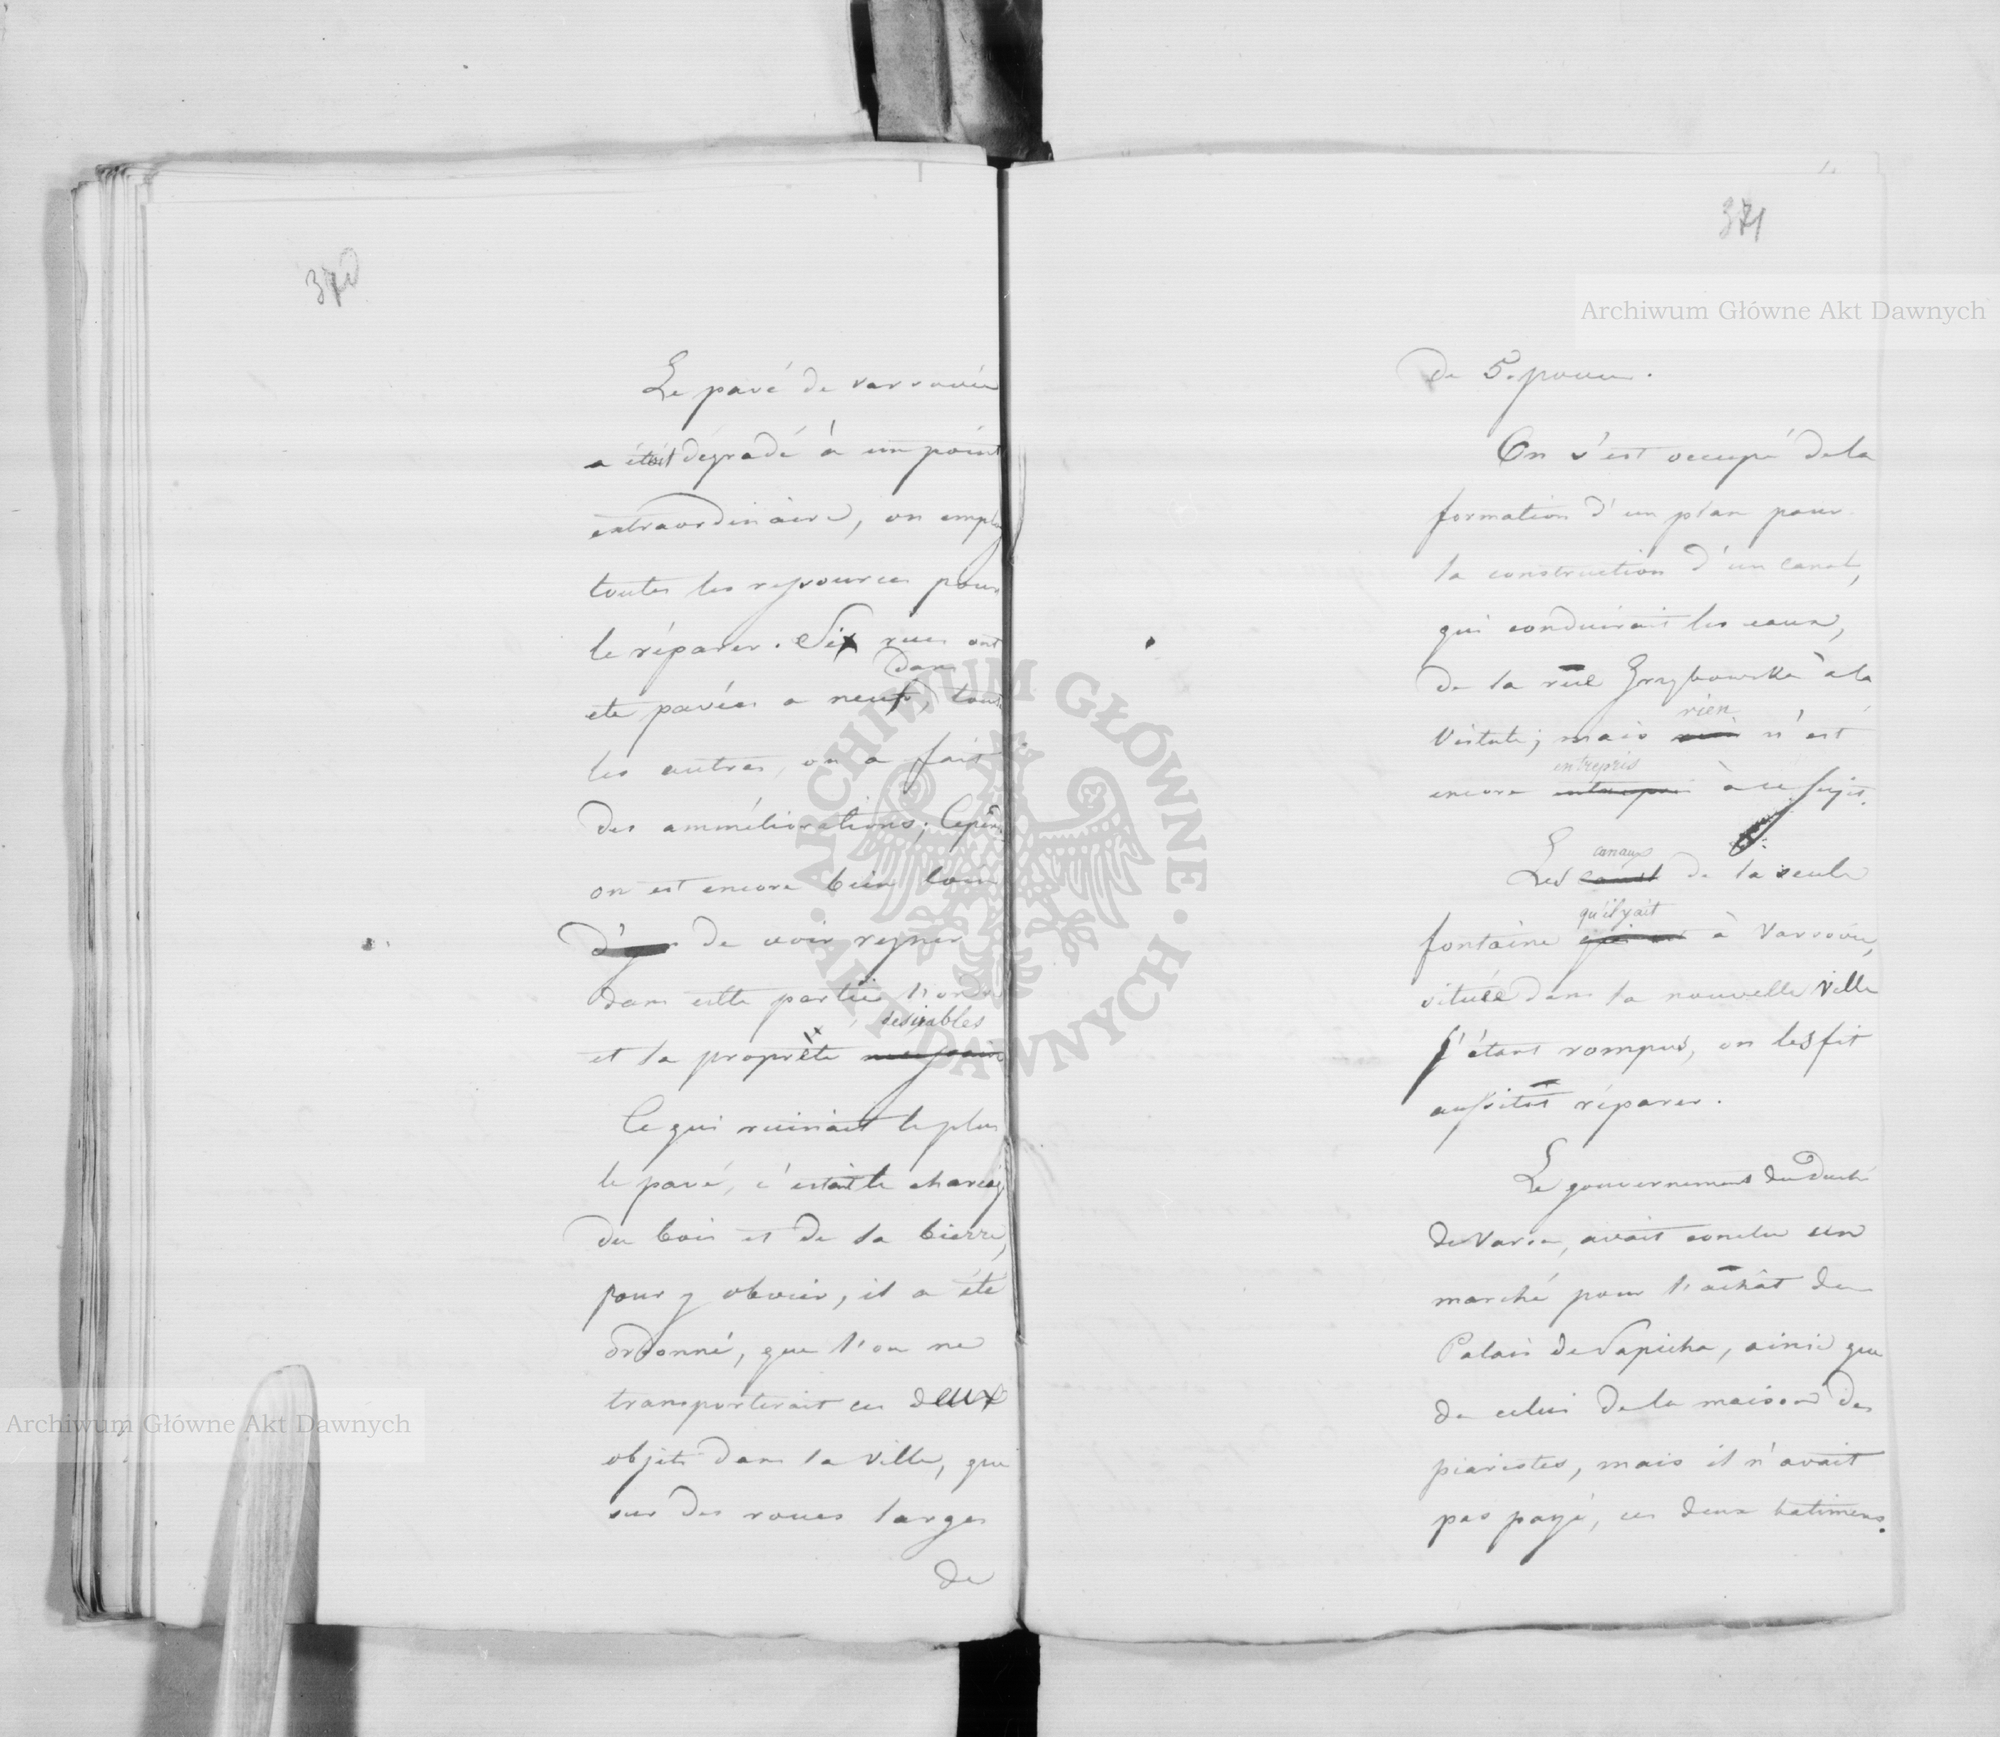 370
Le pavé de varsovie
a étoit dégradé à un point
extraordinaire, on emploÿ
toutes les ressources pour
le réparer. Six rues ont
dans
ete pavées a neuf, tous
les autres, on a fait
des amméliorations; Cepen
on est encore bien loin
d' de voir regner
dans cette partie l'ordre
desirables
et la propreté
Ce qui ruinait le plus
le pavé, c'etait le chariage
du bois et de la bierre,
pour y obvier, il a été
ordonné, que l'on ne
transporterait ces deux
objets dans la ville, que
sur des roues larges
de
371
de 5. pouces.
On s'est occupé de la
formation d'un plan pour
la construction d'un canal,
qui conduirait les eaux,
de la rue Grzybowska à la
rien
Vistule; mais n'est
entrepris
encore entrepris à ce sujet.
canaux
Les canal de la seule
qu'il y ait
fontaine qui est à Varsovie,
située dans la nouvelle Ville
s'étant rompus, on les fit
aussitot réparer.
Le gouvernement du Duché
de Varsie, avait conclu un
marché pour l'achât du
Palais de Sapieha, ainsi que
de celui de la maison des
piaristes, mais il n'avait
pas payé, ces deux batimens.
Archiwum Główne Akt Dawnych
Archiwum Główne Akt Dawnych
ARCHIWUM GŁÓWNE · AKT DAWNYCH ·